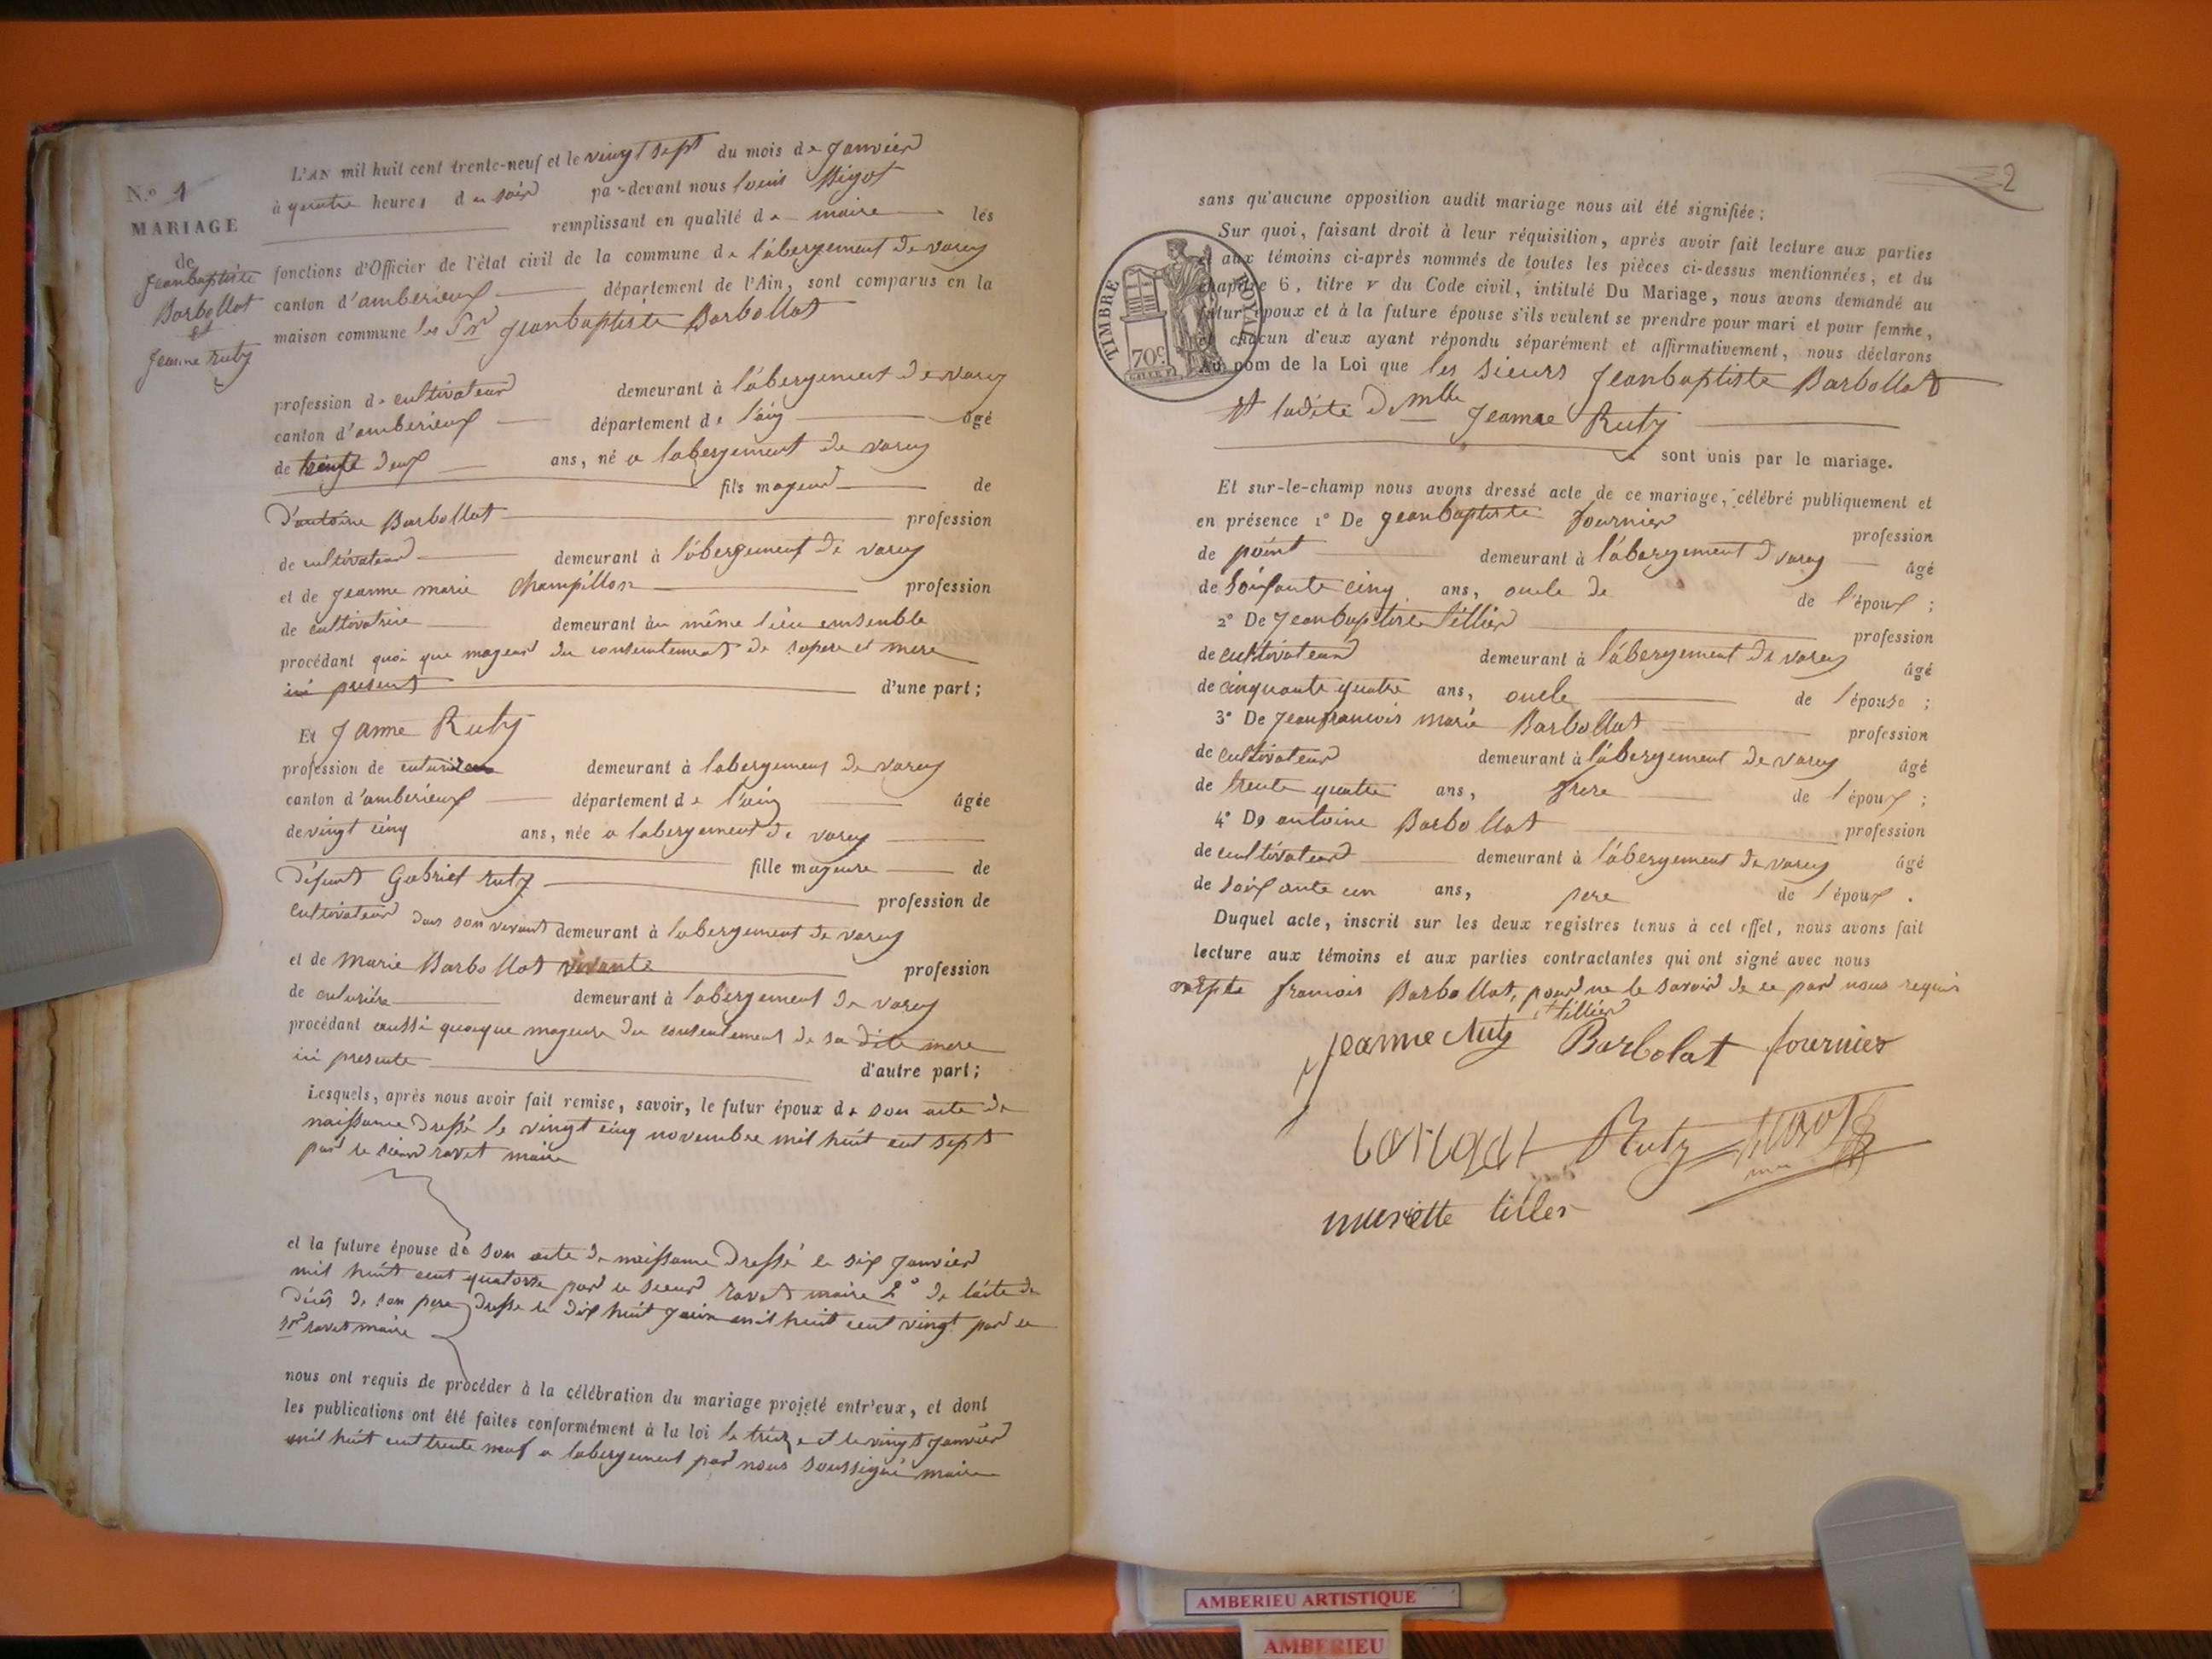 L'AN mil huit cent trente-neuf et le vingt sept du mois de Janvier
à quatre heures du soir par-devant nous louis Bigot
remplissant en qualité de maire les
fonctions d'Officier de l'état civil de la commune de l'abergement de varey
canton d'amberieux département de l'Ain, sont comparus en la
maison commune les Sr Jeanbaptiste Barbollat
N.o 1
MARIAGE
de
Jeanbaptiste
Barbollat
et
Jeanne ruty
profession de cultivateur demeurant à l'abergement de varey
canton d'amberieux département de l'ain âgé
de trente deux ans, né a labergement de varey
fils mageur de
d'antoine Barbollat profession
de cultivateur demeurant à l'abergement de varey
et de jeanne marie Champillon profession
de cultivatrice demeurant au même lieu ensemble
procédant quoi que mageur du consentement de sopere et mere
ici present d'une part;
Et Janne Ruty
profession de demeurant à labergement de varey
canton d'amberieux département de l'ain âgée
de vingt cinq ans, née a labergement de varey
fille mageure de
défunt Gabriel ruty profession de
cultivateur dans son vivant demeurant à labergement de varey
et de Marie Barbollat vivante profession
de demeurant à labergement de varey
procédant aussi quoique mageure du consentement de sa dite mere
ici presente d'autre part;
Lesquels, après nous avoir fait remise, savoir, le futur époux de son acte de
naissance dressé le vingt cinq novembre mil huit cent sept
par le sieur ravet maire
et la future épouse de son acte de naissance dressé le six Janvier
mil huit cent quatorze par le sieur ravet maire 2° de l'acte de
décès de son pere dresse le dix huit juin mil huit cent vingt par le
sr ravet maire
nous ont requis de procéder à la célébration du mariage projeté entr'eux, et dont
les publications ont été faites conformément à la loi le treize et le vingt janvier
mil huit cent trente neuf a labergement par nous soussigné maire
2
sans qu'aucune opposition audit mariage nous ait été signifiée;
Sur quoi, faisant droit à leur réquisition, après avoir fait lecture aux parties
et aux témoins ci-après nommés de toutes les pièces ci-dessus mentionnées, et du
chapitre 6, titre v du Code civil, intitulé Du Mariage, nous avons demandé au
futur époux et à la future épouse s'ils veulent se prendre pour mari et pour femme,
et chacun d'eux ayant répondu séparément et affirmativement, nous déclarons
Au nom de la Loi que les sieurs Jeanbaptiste Barbollat
et ladite Demlle Jeanne Ruty
sont unis par le mariage.
TIMBRE ROYAL
70c
Et sur-le-champ nous avons dressé acte de ce mariage, célébré publiquement et
en présence 1° De jeanbaptiste fournier profession
de point demeurant à l'abergement d varey âgé
de Soixante cinq ans, oncle de de l'époux;
2° De Jeanbaptiste tillier profession
de cultivateur demeurant à l'abergement de varey âgé
de cinquante quatre ans, oncle de l'épouse;
3° De Jeanfrancois marie Barbollat profession
de cultivateur demeurant à l'abergement de varey âgé
de trente quatre ans, frere de l'époux;
4° De antoine Barbollat profession
de cultivateur demeurant à l'abergement de varey âgé
de soixante un ans, pere de l'époux.
Duquel acte, inscrit sur les deux registres tenus à cet effet, nous avons fait
lecture aux témoins et aux parties contractantes qui ont signé avec nous
francois Barbollat, pour ne le savoir de ce par nous requis
tillier
jeanne Ruty Barbolat fournier
Ruty
tiller
AMBERIEU ARTISTIQUE
AMBERIEU